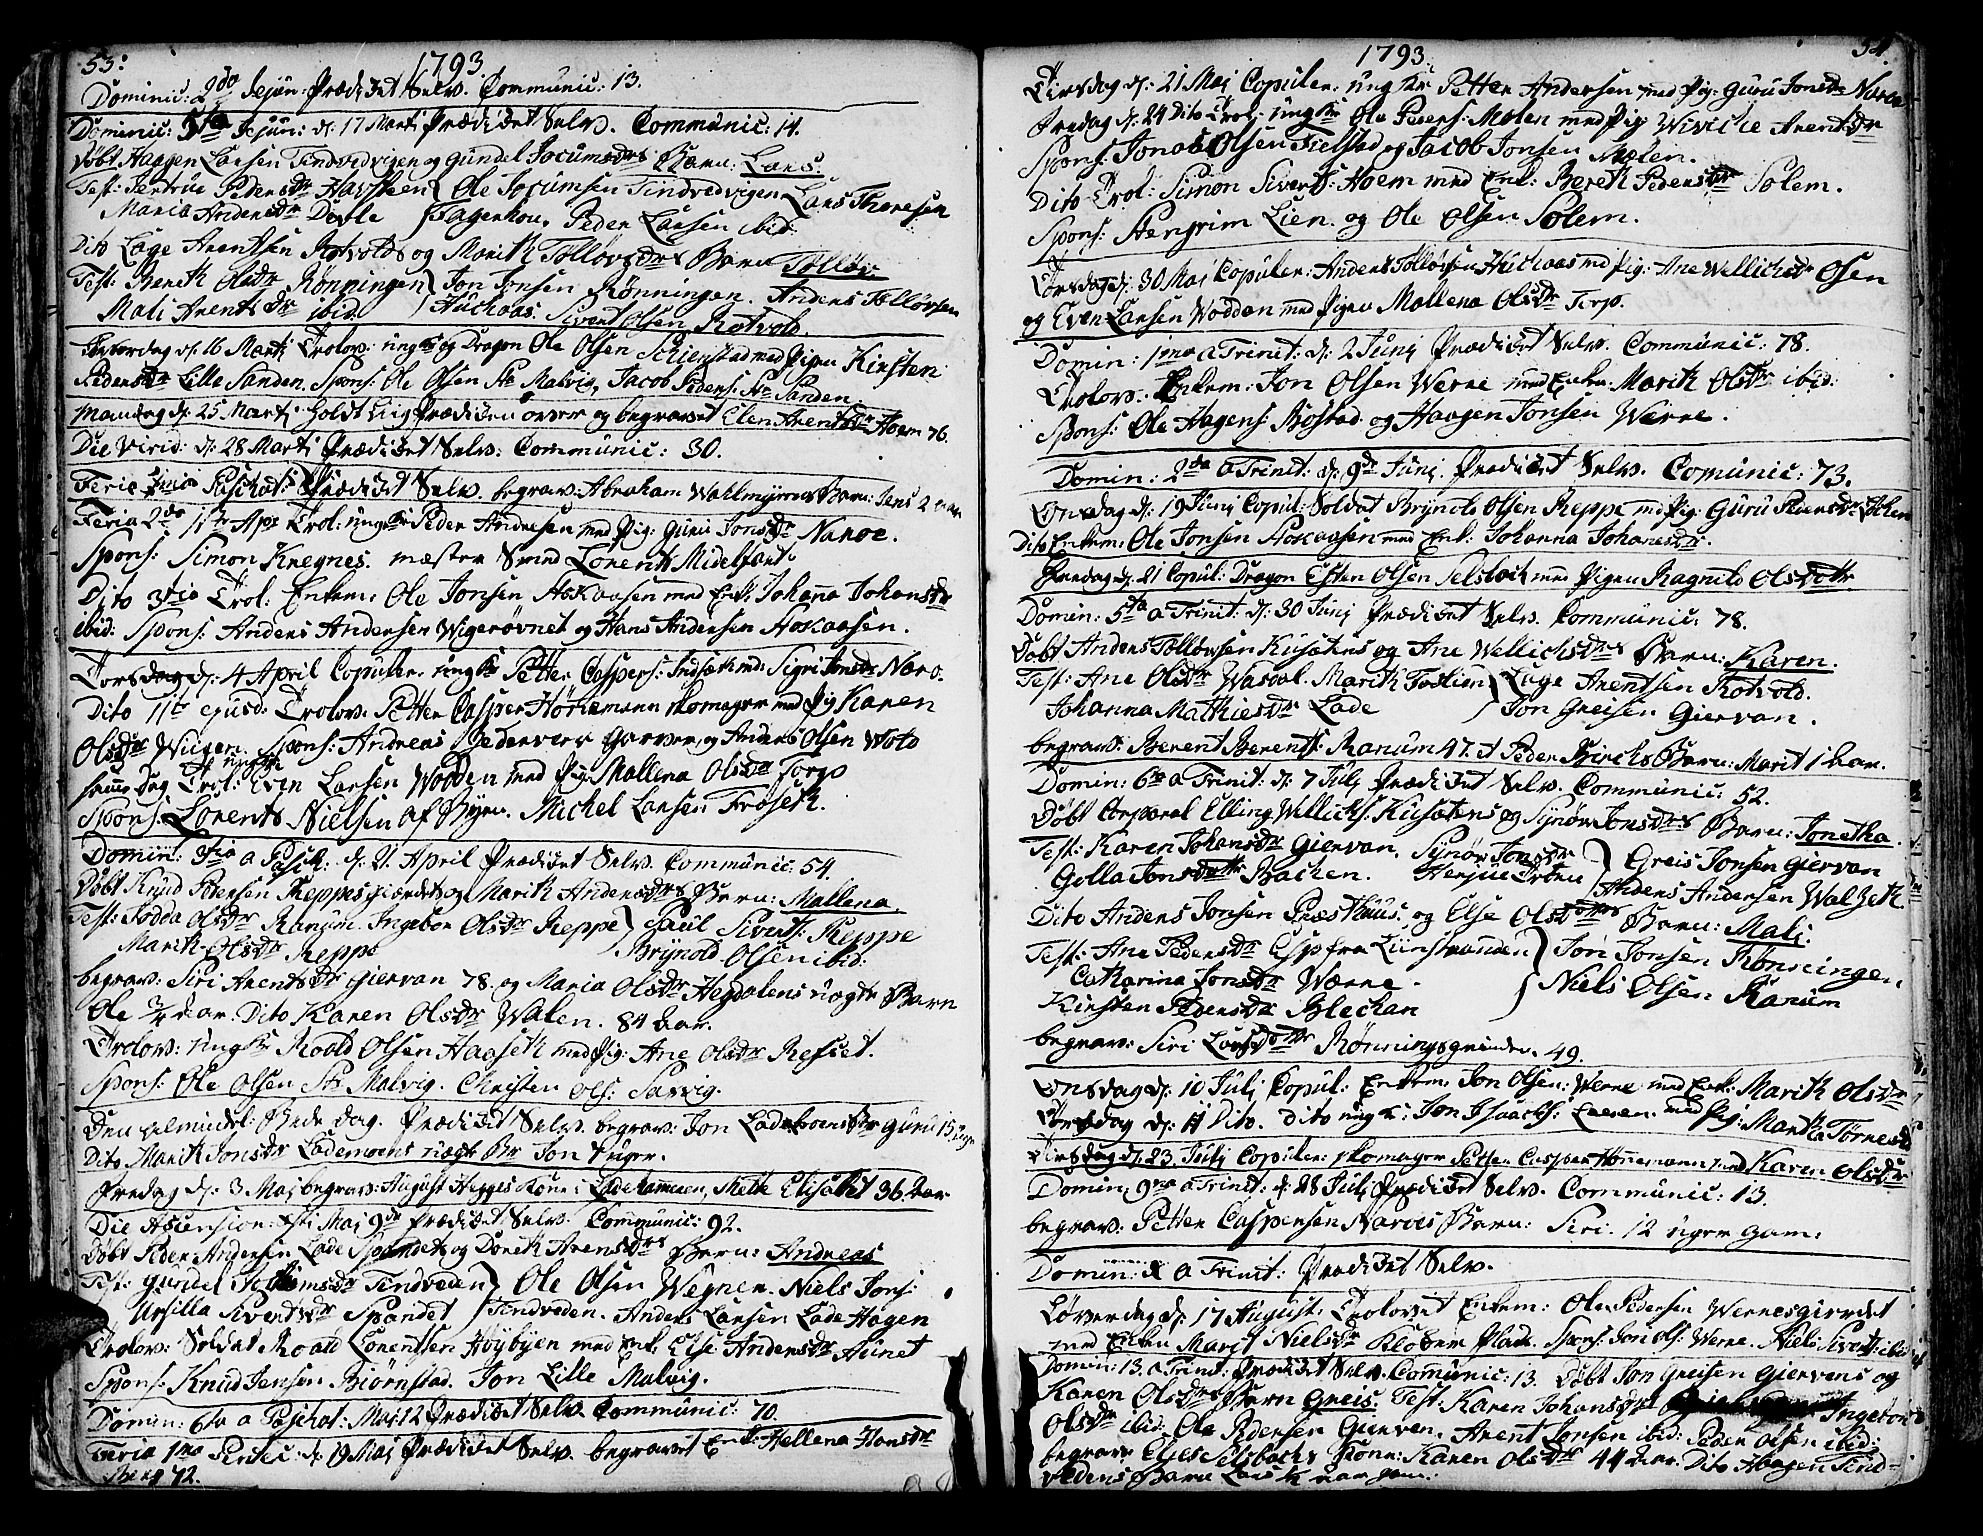 53.
1793.
Dominic: 2do Jejun: Prædiket Selv. Communic: 13.
Dominic: 5ta Jejun: d: 17 Marti Prædiket Selv. Communic: 14.
Døbt Haagen Larsen Tindvedvigen og Gundel Jocumsdrs Barn: Lars.
Test: Pedersdr Ole Jocumsen Tindvedvigen Lars Thoresen
Maria Andersdr Devle Fagerhou. Peder Larsen ibid.
Dito Lage Arentsen Rotvolds og Marith Tølløvsdrs Barn Tølløv.
Test: Bereth Olsdr Rønningen Jon Jonsen Rønningen. Anders Tølløvsen
Mali Arentsdr ibid. Huchaas. Sivert Olsen Rotvold.
d: 16 Marti Trolov: ungk og Dragon Ole Olsen med Pigen Kirsten
Pedersdr Lille Sanden. Spons: Ole Olsen St. Malvig, Jacob Peders: St. Sanden
Mandag d: 25 Marti holdt Liig Prædiken over og begravet Elen Arentsdr Hoem 76.
Die Virid: d: 28 Marti Prædiket Selv. Communic: 30.
Feria 1ma Paschat: Prædiket Selv. begrav: Abraham Wahlmyrens Barn: Jens 2 aar
Feria 2da 1ste Apr Trol: ungk Peder Andresen med Pig: Guru Jonsdr Naroe.
Spons: Simon Kregnes. mæster Svend Lorents Midelfart.
Dito 3tia Trol: Enkem: Ole Jonsen Hokaasen med Enk: Johana Johansdr
ibid: Spons: Anders Andersen Wigerøvnet og Hans Andersen Hokaasen.
Torsdag d: 4 April Copuler. ungk Petter Caspers: Indsæt md: Sigri Jonsdr Naro.
Dito 11te ejusd: Trolov: Petter Casper Hørnemann skomager med Pig Karen
Olsdr Wugen. Spons: Andreas garver, og Anders Olsen Wold
samme Dag Trol: ungk Even Larsen Wodden med Pig: Mallena Olsdr Torp
Spons: Lorents Nielsen af Byen. Michel Larsen Frøseth.
Domin: 3tia a Pasch. d: 21 April Prædiket Selv. Communic: 54.
Døbt Knud Pedersen Reppesgiærdet og Marith Andersdrs Barn: Mallena.
Test: Olsdr Ranum. Ingebor Olsdr Reppe Paul Sivert: Reppe
Marith Olsdr Reppe Brynold Olsen ibid:
begrav: Siri Arentsdr Giervan 78. og Maria Olsdr Hegdalens uægte Barn
Ole 3/4 aar. Dito Karen Olsdr Walen. 84 Aar.
Trolov: ungk Roald Olsen Haaseth med Pig: Ane Olsdr Refset.
Spons: Ole Olsen St. Malvig. Christen Ols: Saxvig.
Den almindel: Bede Dag. Prædiket Selv. begrav: Jon Lademoens Dr Guru 15 uger
Dito Marith Jonsdr Lademoens uægte Br Jon 4 uger.
Fredag d: 3 Maj begrav: August Hegges Kone: Ladehameren, Mette Elisabet 36 Aar.
Die Ascension: Xsti Maj 9de Prædiket Selv. Communic: 92.
Døbt Peder Andersen Lade Spandets og Doreth Arensdrs Barn: Andreas
Test: Gundel Jocumsdr Tindveden Ole Olsen Wegner. Niels Jons:
Ursilla Sivertsdr Spandet Tindveden. Anders Larsen Lade Hagen
Trolov: Soldat Roald Lorentsen Høybyen med Enk: Else Andersdr Hunet
Spons: Knud Jensen Biørnstad. Jon Lille Malvig.
Domin: 6ta a Paschat: Maj 12 Prædiket Selv. Communic: 70.
Feria 1ma Pentec: d: 19 Maj Prædiket Selv. begravet Enk: Hellena Hansdr
Berg 72.
54.
1793.
Tirsdag d: 21 Maj Copuler: ungkr: Petter Andersen med Pig: Guru Jonsdr Naroe
Fredag d: 24 Dito Trol: ungkr Ole Peders: Molen med Pig Wiviche Arentsdr
Spons: Jonas Olsen Fielstad og Jacob Jonsen Molen.
Dito Trol: Simon Siverts: Hoem med Enk: Bereth Pedersdr Solem.
Spons: Hengrim Lien og Ole Olsen Solem.
Torsdag d: 30 Maj Copuler: Anders Tølløvsen Huchaas md Pig: Ane Wellichsdr Olsen
og Even Larsen Wodden med Pigen Mallena Olsdr Torp.
Domin: 1ma a Trinit: d: 2 Junj Prædiket Selv. Communic: 78.
Trolov: Enkem: Jon Olsen Werne med Enken Marith Olsdr ibid:
Spons: Ole Hagens: Bostad og Haagen Jonsen Werne.
Domin: 2da a Trinit: d: 9de Junj Prædiket Selv. Comunic: 73.
Onsdag d: 19 Junj Copul: Soldat Brynold Olsen Reppe md Pig: Guru Pedersdr
Dito Enkem: Ole Jonsen Hokaasen med Enk: Johanna Johansdr.
Fredag d: 21 Copul: Dragon Esten Olsen Selsbach med Pigen Ragnild Olsdotr
Domin: 5ta a Trinit: d: 30 Junj Prædiket Selv. Communic: 78.
Døbt Anders Tølløvsen Kusætens og Ane Wellichsdrs Barn: Karen.
Test: Ane Olsdr Marith Lage Arentsen Rotvold.
Johanna Mathiesdr Lade Jon Greisen Giervan.
begrav: Berent Berents: Ranum 47. Peder Barn: Marit 1 aar.
Domin: 6ta a Trinit: d: 7 Julj Prædiket Selv. Communic: 52.
Døbt Corporal Elling Wellichs: Kusætens og Synøv Jonsdrs Barn: Jonetha.
Test: Karen Johansdr Giervan. Synøv Jonsdr Greis Jonsen Giervan
Golla Jonsdotr Bachen. Anders Andersen Walseth.
Dito Anders Jonsen Præsthuus og Else Olsdotrs Barn: Mali.
Test: Ane Pedersdr Esp fra Liinstranden Jon Jonsen Rønningen
Catharina Jonsdr Wærne. Niels Olsen Ranum
Kirsten Pedersdr Blechan
begrav: Siri Larsdotr Rønningsgrinden. 49.
Onsdag d: 10 Julj Copul: Enkem: Jon Olsen: Werne med Enk: Marith Olsdr
Torsdag d: 11 Dito. dito ungk: Jon Isaachs: med Pig: Martha Tørresdr
Tirsdag d. 23 Julj Copuler: skomager Petter Casper Hønemann med Karen Olsdr
Domin: 9na a Trinit: d: 28 Julj Prædiket Selv. Communic: 13.
begrav: Petter Caspersen Naroes Barn: Siri. 12 uger gam:
Domin: X a Trinit: Prædiket Selv.
Løverdag d: 17 August: Trolovet Enkem: Ole Pedersen Wernesgierdet
med Enken Marit Nielsdr Klober Plads. Spons: Jon Ols: Werne. Niels Sivert: ibid
Domin: 13. a Trinit: Prædiket Selv. Communic: 13. Døbt Jon Greisen Giervens og
Karen Olsdrs Barn Greis. Test: Karen Johansdr Ingebor
Olsdr ibid: Ole Pedersen Giervan. Arent Jonsen ibid: Peder Olsen ibid:
begrav: Elies Selsbachs Kone: Karen Olsdr 44 Aar. Dito Haagen Tind-
vedens Barn Lars 1/2 aar gam: